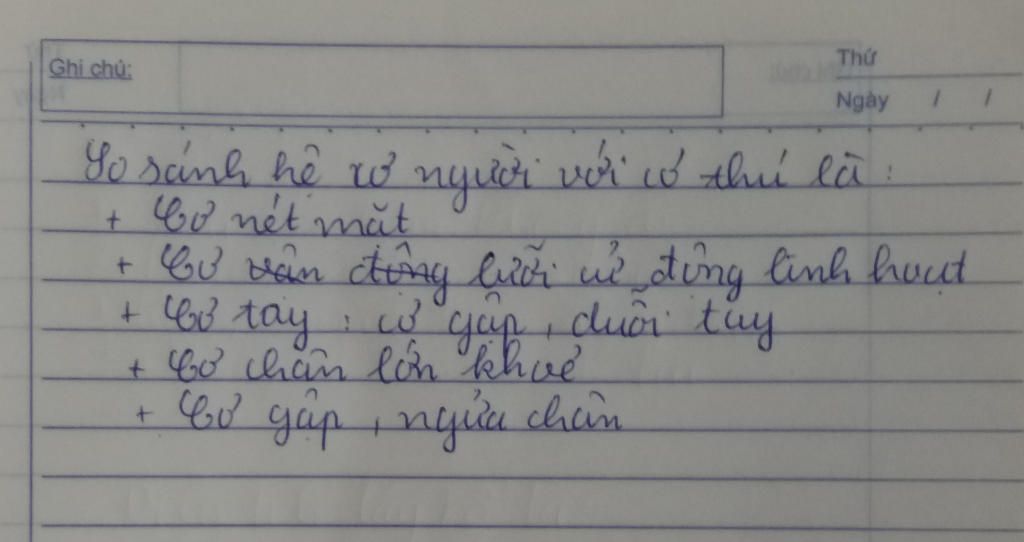 Ghi chú:
Thứ
Ngày / /
So sánh hệ cơ người với cơ thú là :
+ Cơ nét mặt
+ Cơ vận động lưỡi cử động linh hoạt
+ Cơ tay : cơ gập, duỗi tay
+ Cơ chân lớn khoẻ
+ Cơ gập, ngửa chân